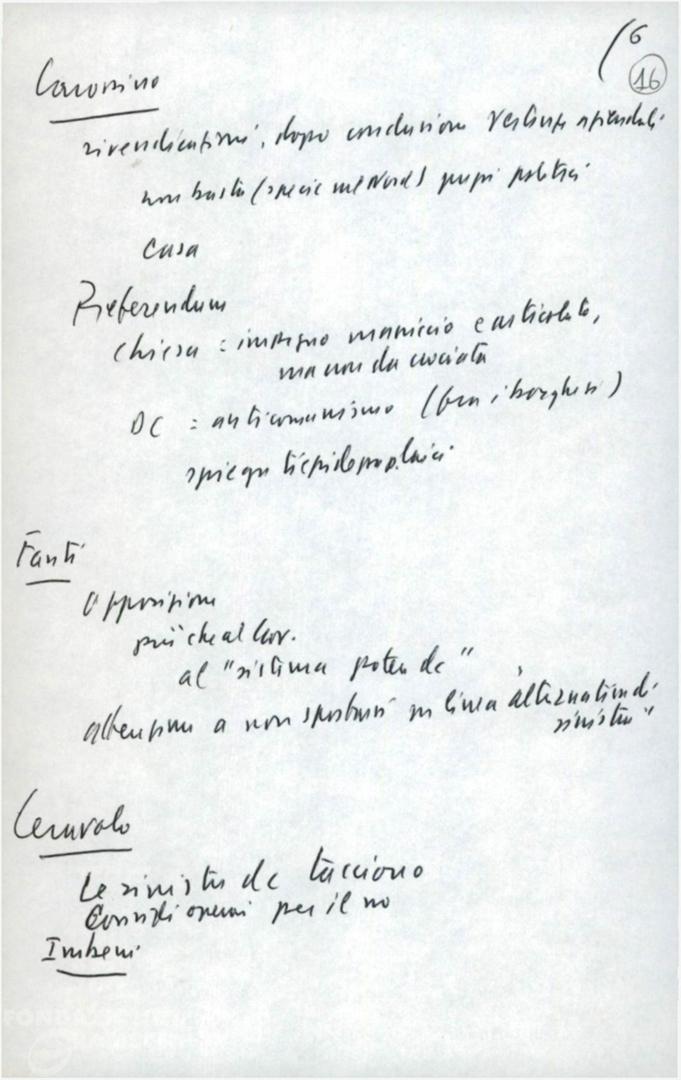 6
16
rivendicazioni, dopo conclusione vertenze aziendali
non basta (specie me Nord) gruppi politici
Casa
Referendum
Chiesa = impegno massiccio e articolato,
ma non da crociata
DC = anticomunismo (fra i borghesi)
Fanti
Opposizione
più che al Gov.
al "sistema potere dc"
attenzione a non spostarsi su linea "alternativa di
sinistra"
Cervolo
Le sinistre dc tacciono
Consigli operai per il no
Imbeni